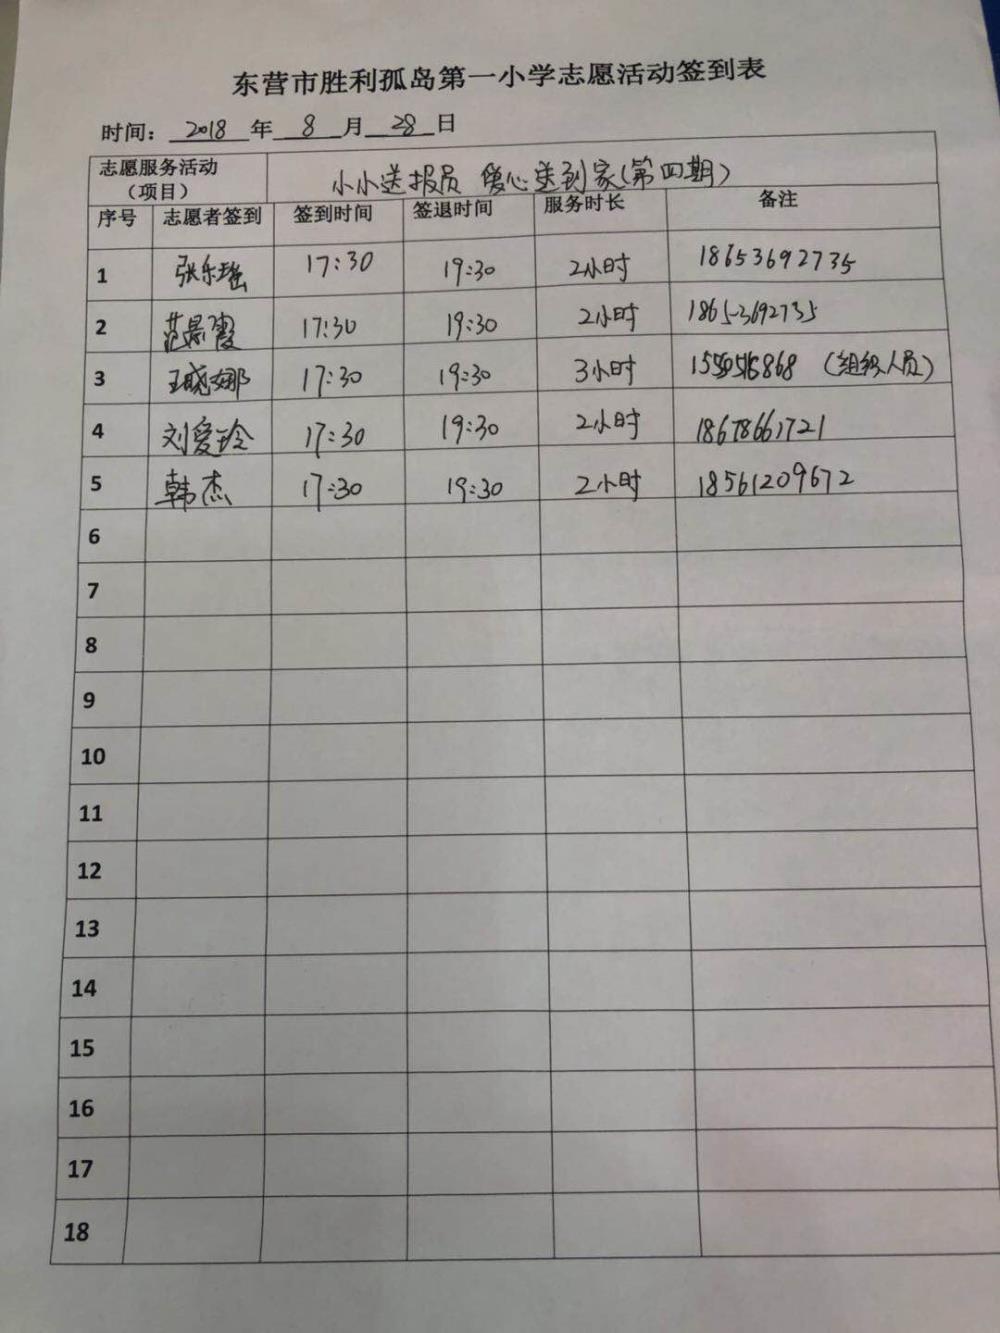 东营市胜利孤岛第一小学志愿活动签到表
时间： 2018 年 8 月 28 日
志愿服务活动（项目） 小小送报员 爱心送到家（第四期）
序号 志愿者签到 签到时间 签退时间 服务时长 备注
1 张乐瑶 17:30 19:30 2小时 18653692735
2 范景霞 17:30 19:30 2小时 18653692735
3 王晓娜 17:30 19:30 3小时 （组织人员）
4 刘爱玲 17:30 19:30 2小时 18678661721
5 韩杰 17:30 19:30 2小时 18561209672
6
7
8
9
10
11
12
13
14
15
16
17
18